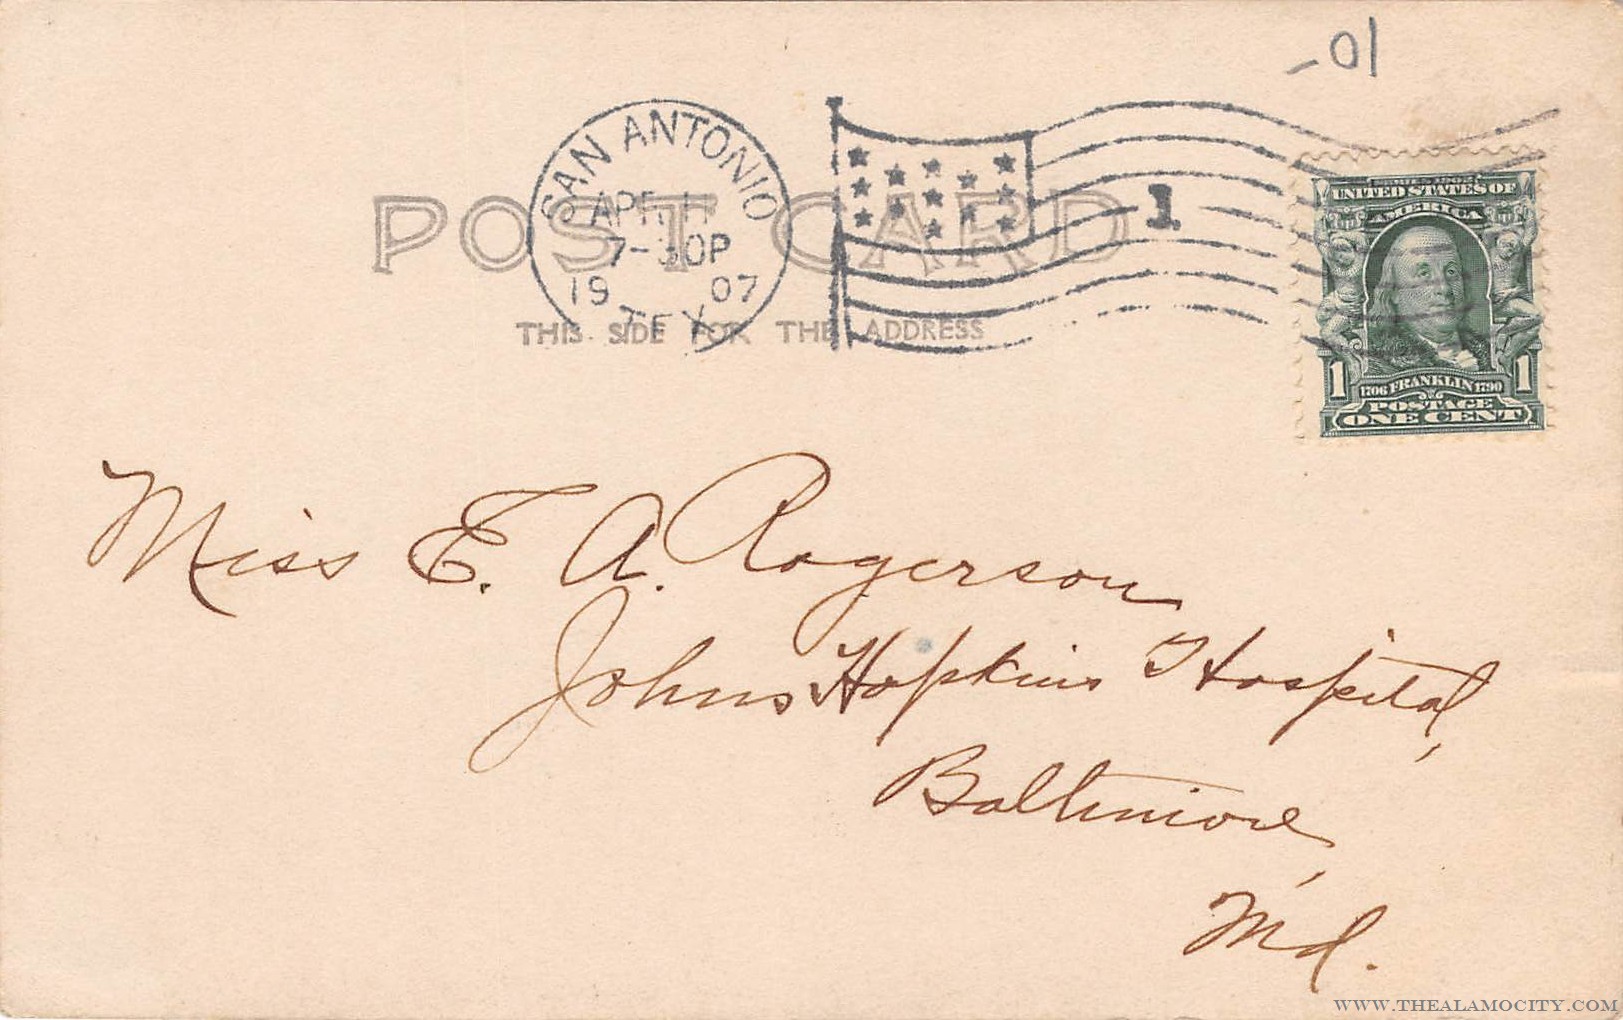 -01
SAN ANTONIO
APR 11
7-30P
19 07
TEX
1
POST CARD
THIS SIDE FOR THE ADDRESS
SERIES 1902
UNITED STATES OF
AMERICA
1 1706 FRANKLIN 1790 1
POSTAGE
ONE CENT
Miss E. A. Rogerson
Johns Hopkins Hospital,
Baltimore,
Md.
WWW.THEALAMOCITY.COM